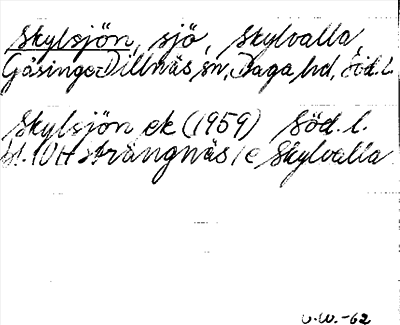 Skylsjön, sjö, Skylvalla,
Gåsinge-Dillnäs sn, Daga hd, Söd. l.
Skylsjön ek (1959) Söd. l.
bl. 10H Strängnäs / e Skylvalla
U.W.-62